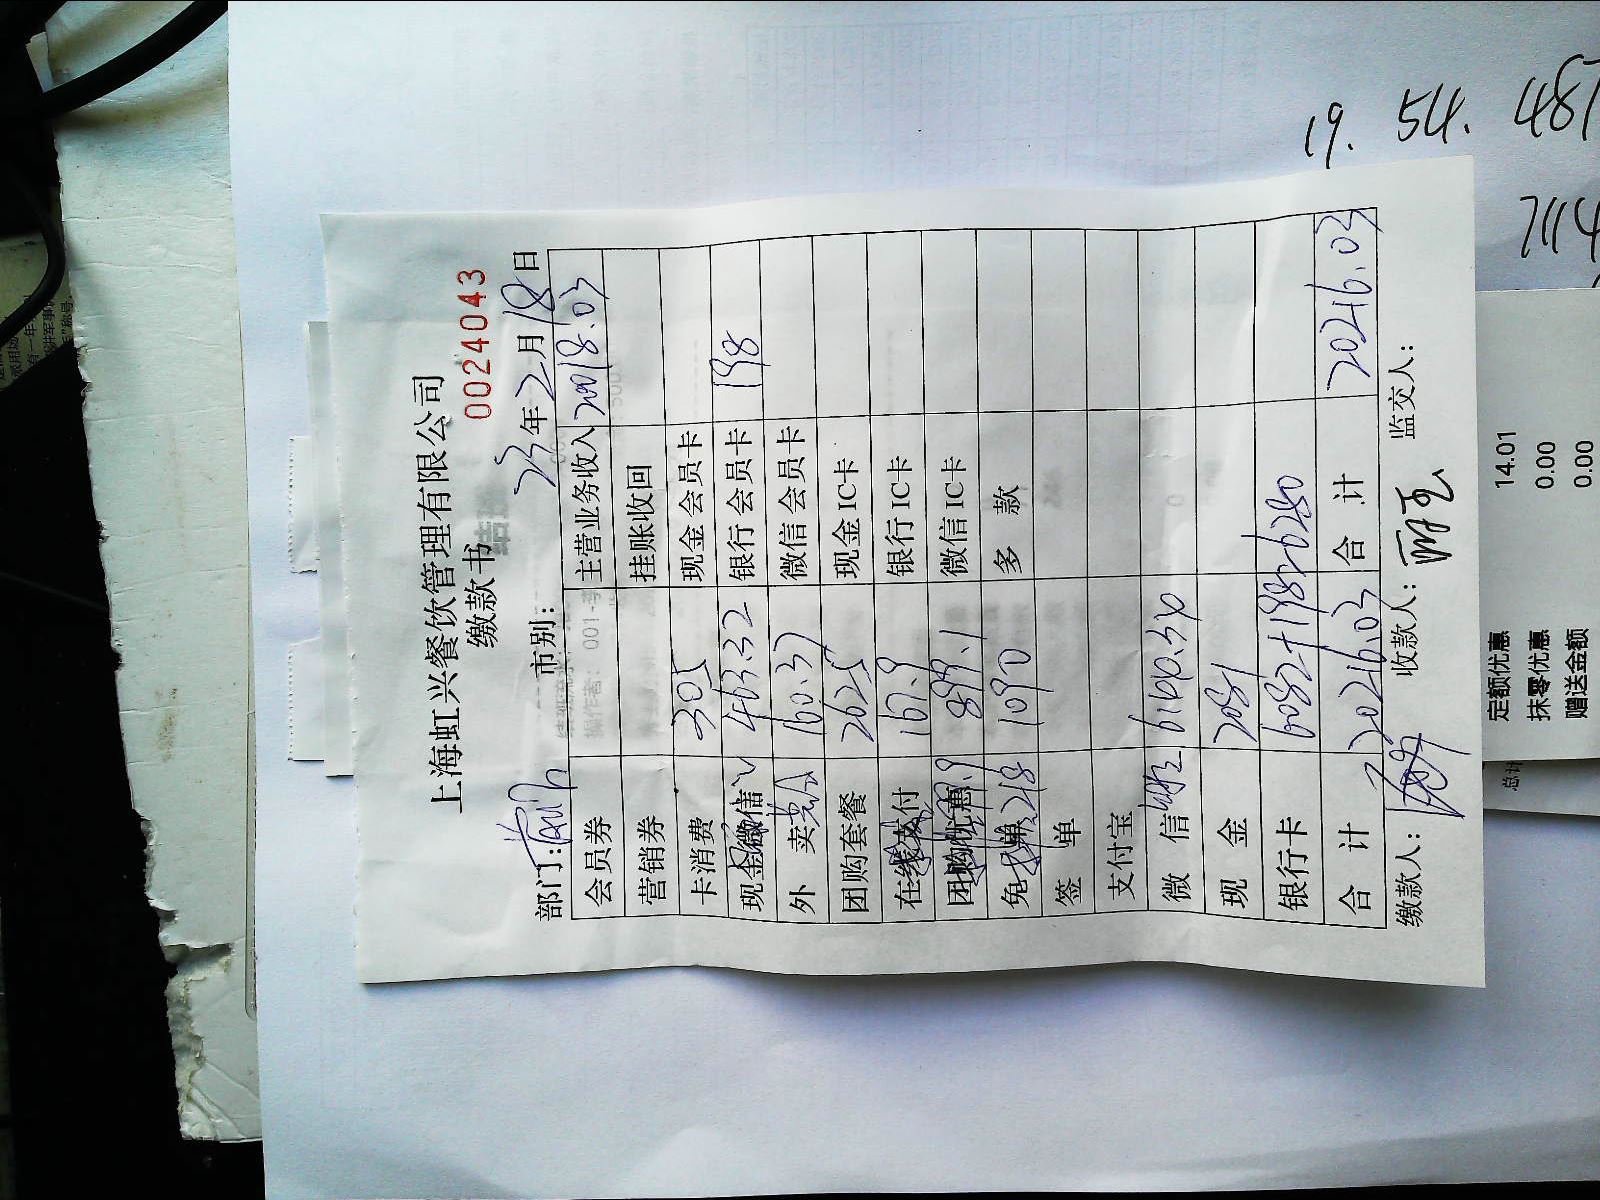 上海虹兴餐饮管理有限公司
缴款书
0024043
部门: 市别: 23年2月18日
会员券 主营业务收入 20018.03
营销券 挂账收回
卡消费 305 现金会员卡
现金微信 463.32 银行会员卡 198
外卖 160.37 微信会员卡
团购套餐 2625 现金IC卡
在线支付 167.9 银行IC卡
团购优惠 899.1 微信IC卡
免单 1090 多款
签单
支付宝
微信
现金 2081
银行卡 6082+198=6280
合计 20216.03 合计 20216.03
缴款人: 收款人: 监交人:
19. 54. 487
7114
定额优惠 14.01
抹零优惠 0.00
赠送金额 0.00
总计